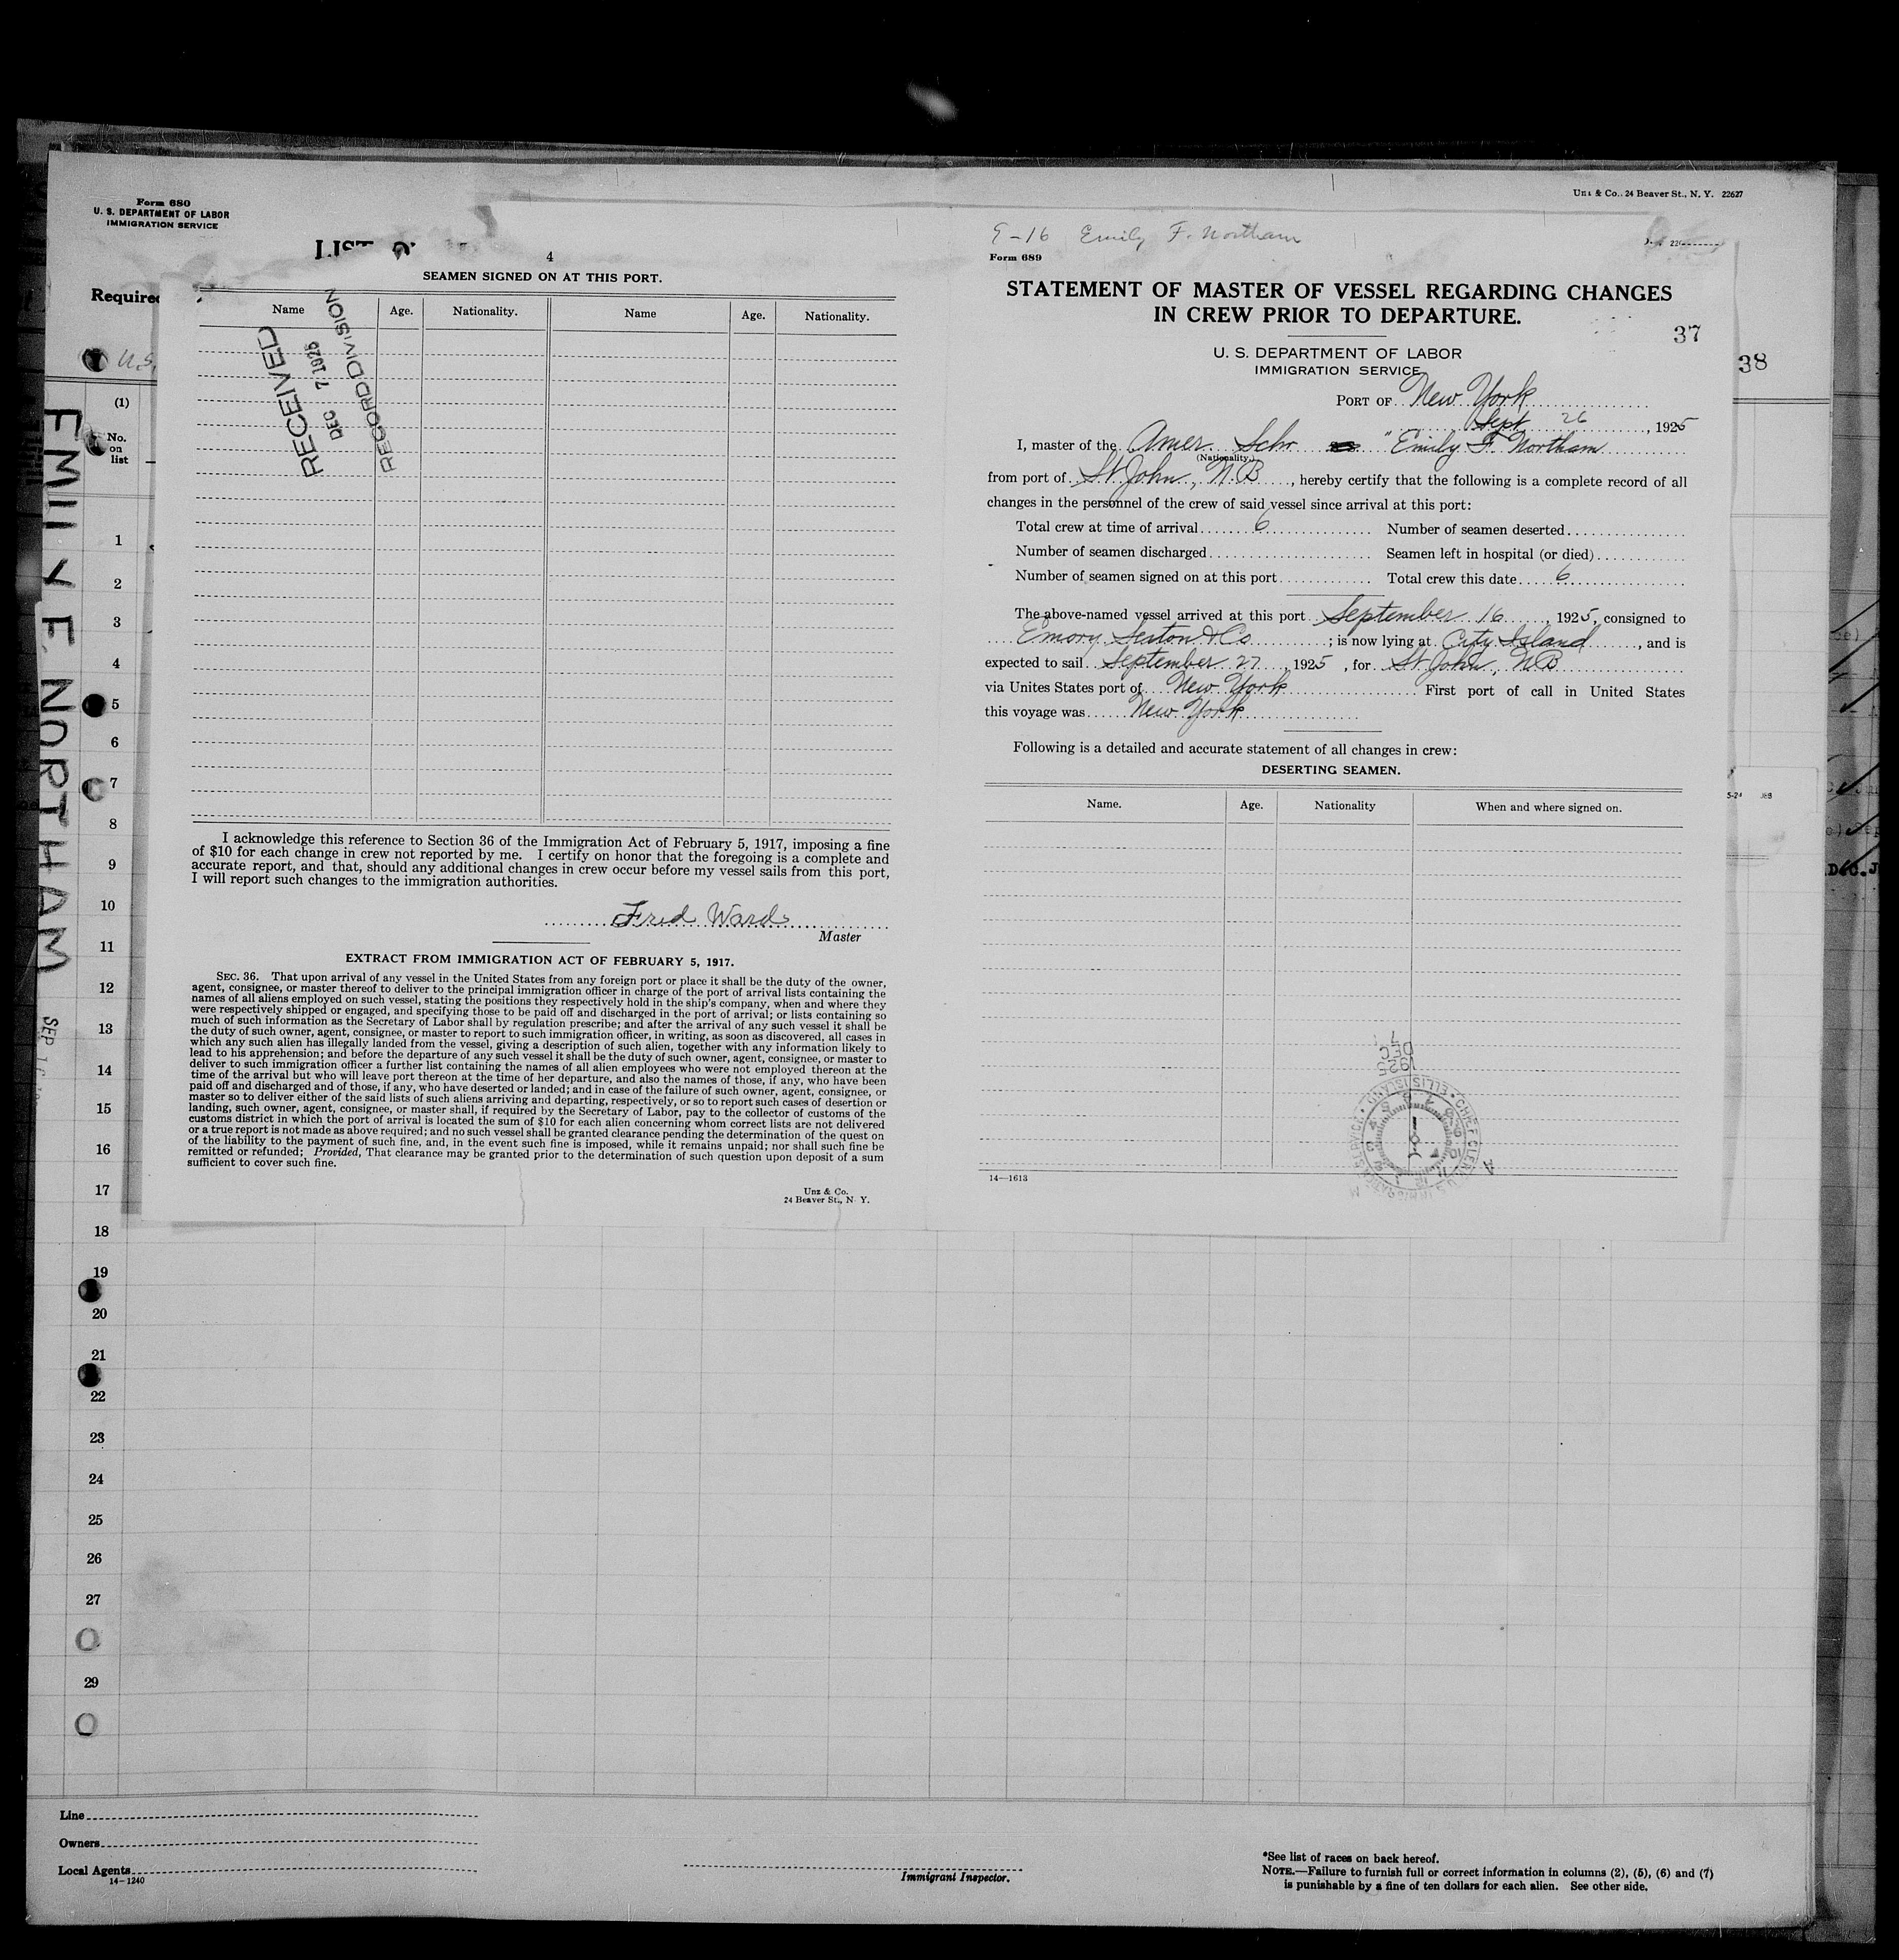 Form 680
U. S. DEPARTMENT OF LABOR
IMMIGRATION SERVICE
LIST
Required
U.S.
(1)
No.
on
list
EMILY F. NORTHAM
SEP 16
1
2
3
4
5
6
7
8
9
10
11
12
13
14
15
16
17
18
19
20
21
22
23
24
25
26
27
29
4
SEAMEN SIGNED ON AT THIS PORT.
Name Age. Nationality. Name Age. Nationality.
RECEIVED
DEC 7 1925
RECORD DIVISION
I acknowledge this reference to Section 36 of the Immigration Act of February 5, 1917, imposing a fine
of $10 for each change in crew not reported by me. I certify on honor that the foregoing is a complete and
accurate report, and that, should any additional changes in crew occur before my vessel sails from this port,
I will report such changes to the immigration authorities.
Fred Ward
Master
EXTRACT FROM IMMIGRATION ACT OF FEBRUARY 5, 1917.
SEC. 36. That upon arrival of any vessel in the United States from any foreign port or place it shall be the duty of the owner,
agent, consignee, or master thereof to deliver to the principal immigration officer in charge of the port of arrival lists containing the
names of all aliens employed on such vessel, stating the positions they respectively hold in the ship's company, when and where they
were respectively shipped or engaged, and specifying those to be paid off and discharged in the port of arrival; or lists containing so
much of such information as the Secretary of Labor shall by regulation prescribe; and after the arrival of any such vessel it shall be
the duty of such owner, agent, consignee, or master to report to such immigration officer, in writing, as soon as discovered, all cases in
which any such alien has illegally landed from the vessel, giving a description of such alien, together with any information likely to
lead to his apprehension; and before the departure of any such vessel it shall be the duty of such owner, agent, consignee, or master to
deliver to such immigration officer a further list containing the names of all alien employees who were not employed thereon at the
time of the arrival but who will leave port thereon at the time of her departure, and also the names of those, if any, who have been
paid off and discharged and of those, if any, who have deserted or landed; and in case of the failure of such owner, agent, consignee, or
master so to deliver either of the said lists of such aliens arriving and departing, respectively, or so to report such cases of desertion or
landing, such owner, agent, consignee, or master shall, if required by the Secretary of Labor, pay to the collector of customs of the
customs district in which the port of arrival is located the sum of $10 for each alien concerning whom correct lists are not delivered
or a true report is not made as above required; and no such vessel shall be granted clearance pending the determination of the quest on
of the liability to the payment of such fine, and, in the event such fine is imposed, while it remains unpaid; nor shall such fine be
remitted or refunded; Provided, That clearance may be granted prior to the determination of such question upon deposit of a sum
sufficient to cover such fine.
Unz & Co.
24 Beaver St., N. Y.
Unz & Co., 24 Beaver St., N. Y. 22627
9-16 Emily F. Northam
Form 689
STATEMENT OF MASTER OF VESSEL REGARDING CHANGES
IN CREW PRIOR TO DEPARTURE.
37
38
U. S. DEPARTMENT OF LABOR
IMMIGRATION SERVICE
PORT OF New York
Sept 26, 1925
I, master of the Amer. Schr "Emily F. Northam
(Nationality.)
from port of St John, N.B., hereby certify that the following is a complete record of all
changes in the personnel of the crew of said vessel since arrival at this port:
Total crew at time of arrival 6 Number of seamen deserted
Number of seamen discharged Seamen left in hospital (or died)
Number of seamen signed on at this port Total crew this date 6
The above-named vessel arrived at this port September 16, 1925, consigned to
Emory Sexton & Co; is now lying at City Island, and is
expected to sail September 27, 1925, for St John, NB
via Unites States port of New York First port of call in United States
this voyage was New York
Following is a detailed and accurate statement of all changes in crew:
DESERTING SEAMEN.
Name. Age. Nationality When and where signed on.
1925
DEC
7
CHIEF CLERK U.S. IMMIGRATION SERVICE ELLIS ISLAND
14—1613
Line
Owners
Local Agents
14-1240
Immigrant Inspector.
*See list of races on back hereof.
NOTE.—Failure to furnish full or correct information in columns (2), (5), (6) and (7)
is punishable by a fine of ten dollars for each alien. See other side.